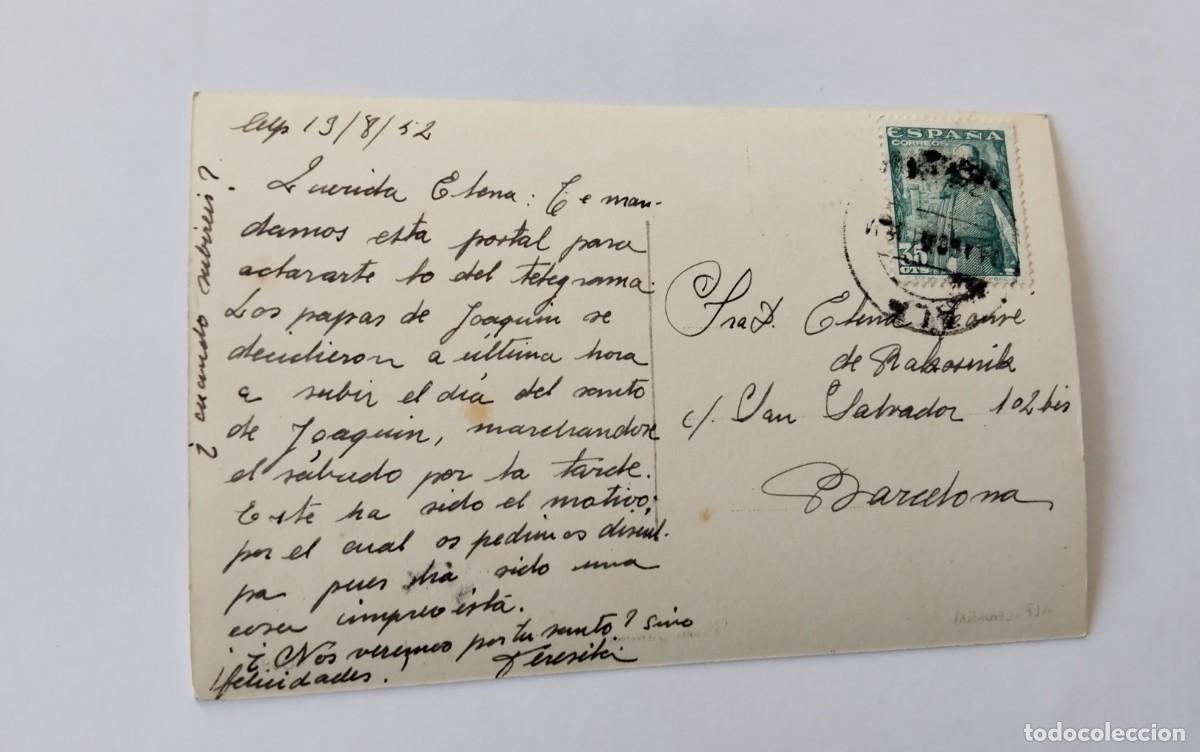 Alp 13/8/52
Querida Elena: Te man-
damos esta postal para
aclararte lo del telegrama.
Los papas de Joaquin se
decidieron a última hora
a subir el día del santo
de Joaquin, marchandose
el sábado por la tarde.
Este ha sido el motivo,
por el cual os pedimos discul-
pa pues ha sido una
cosa imprevista.
¿Nos veremos por tu santo? sino
¡felicidades. Teresita
¿cuando subireis?
ESPAÑA
CORREOS
35
CTS
ALP
Sra D. Elena
de Rakosnik
c/. San Salvador 102 bis
Barcelona
todocoleccion